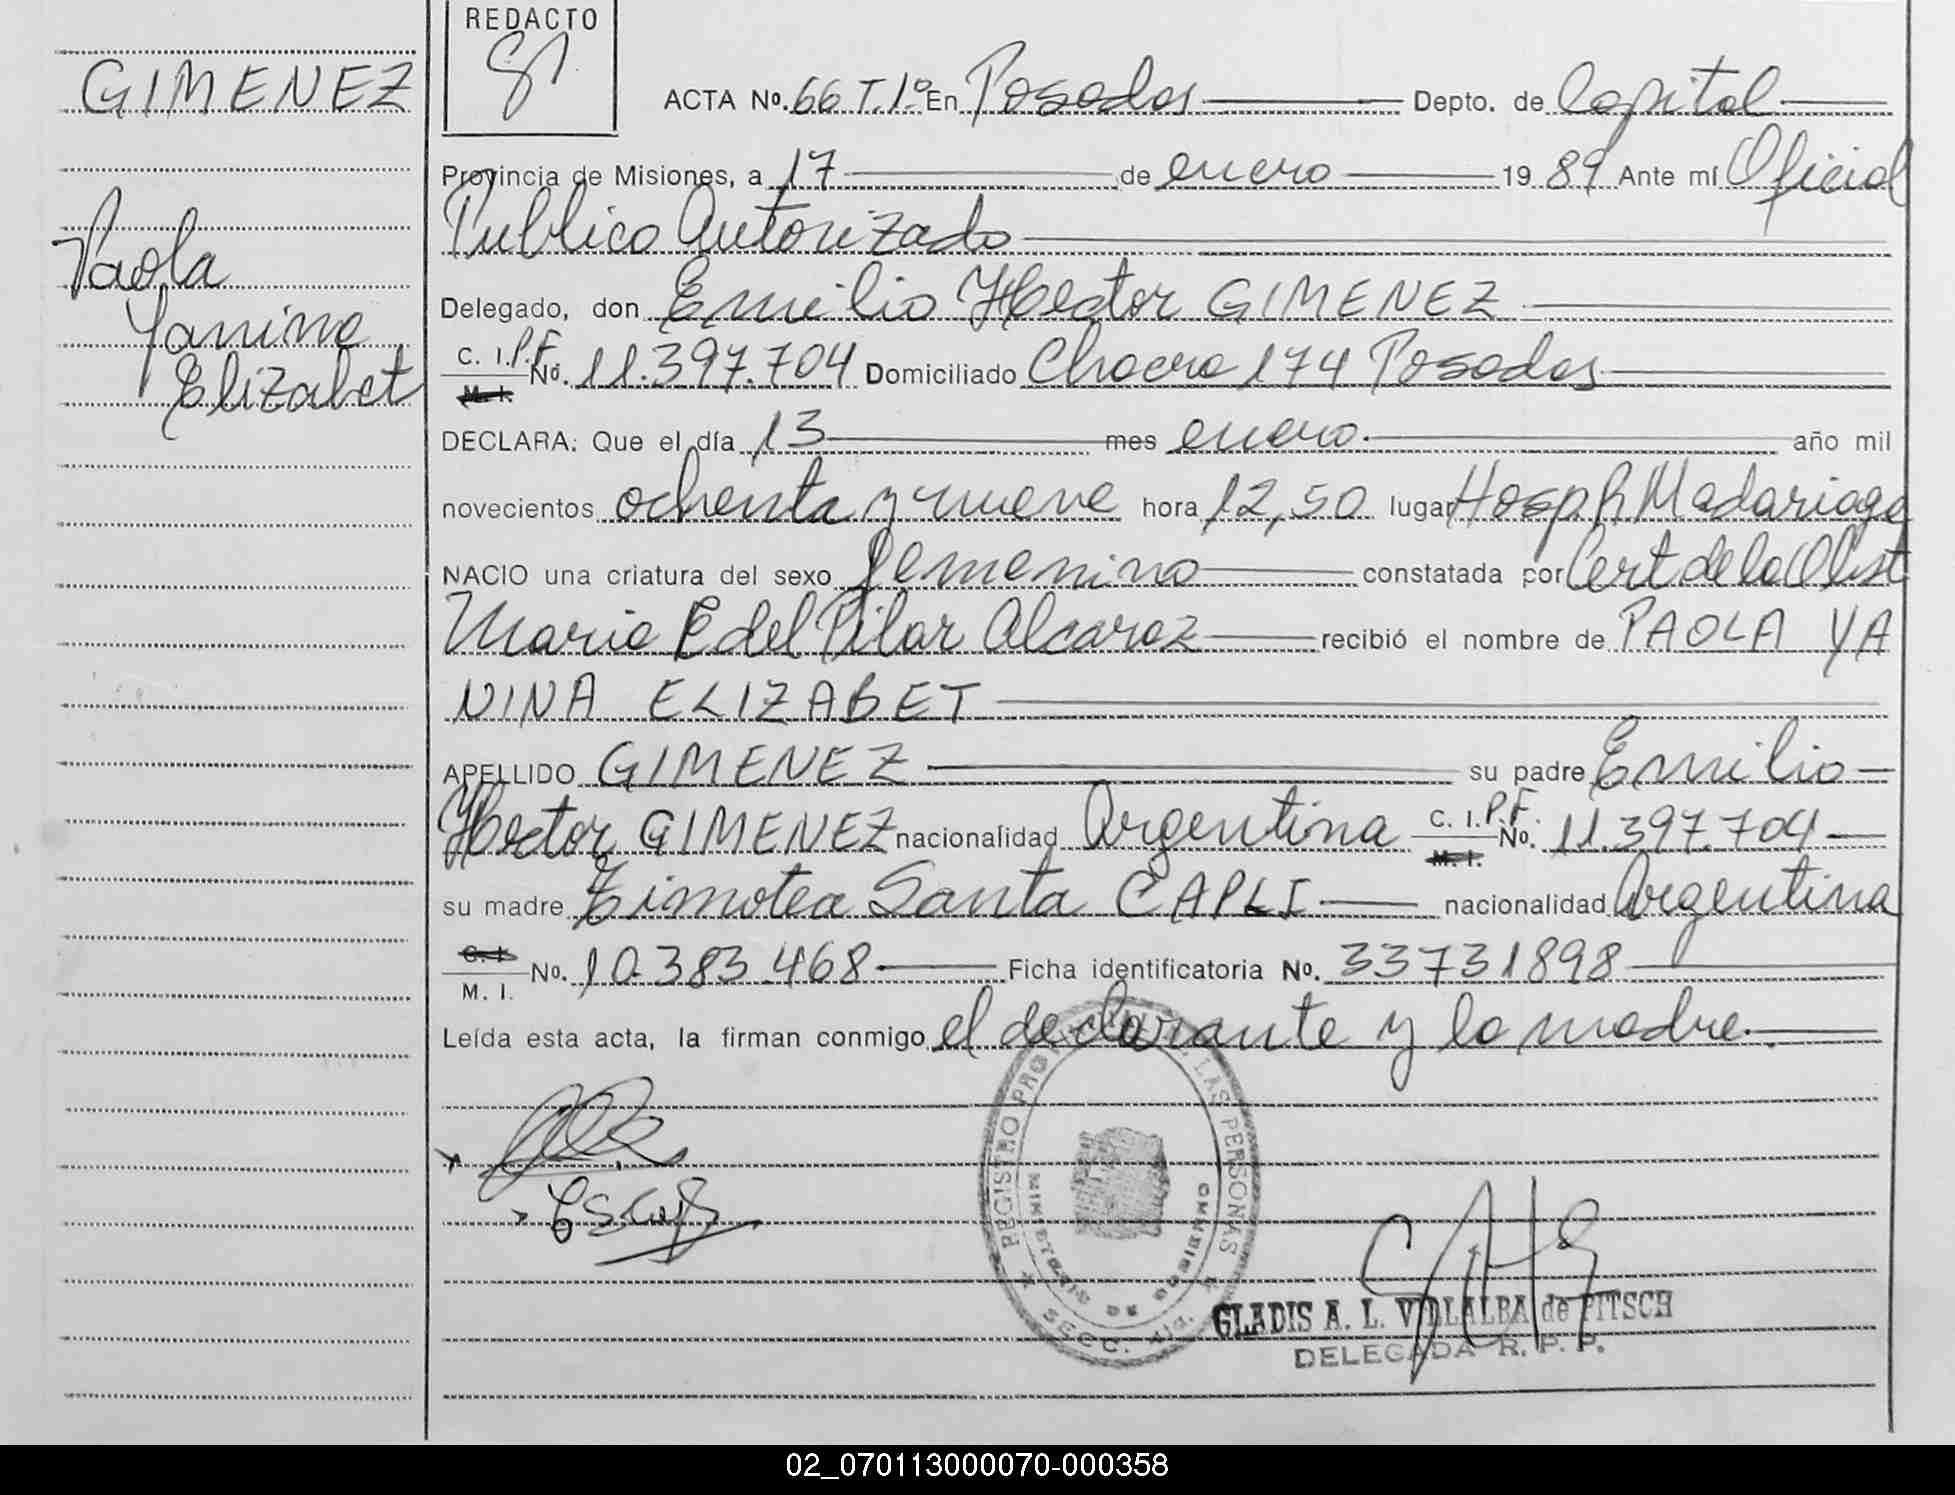 REDACTO
GIMENEZ
Paola
Yanina
Elizabet
ACTA No. 66 T.1º En Posadas Depto. de Capital
Provincia de Misiones, a 17 de enero 1989 Ante mí Oficial
Publico Autorizado
Delegado, don Emilio Hector GIMENEZ
C. I. P.F. M. I. No. 11.397.704 Domiciliado Chacra 174 Posadas
DECLARA: Que el día 13 mes enero. año mil
novecientos ochenta y nueve hora 12,50 lugar Hosp R Madariaga
NACIO una criatura del sexo femenino constatada por Cert de la Obst
Maria E del Pilar Alcaraz recibió el nombre de PAOLA YA
NINA ELIZABET
APELLIDO GIMENEZ su padre Emilio
Hector GIMENEZ nacionalidad Argentina C. I. P.F. M. I. No. 11.397.704
su madre Timotea Santa CAPLI nacionalidad Argentina
C. I. M. I. No. 10.383.468 Ficha identificatoria No. 33731898
Leída esta acta, la firman conmigo el declarante y la madre.
REGISTRO LAS PERSONAS
MINISTERIO DE GOBIERNO
SECC.
GLADIS A. L. VILLALBA de PITSCH
DELEGADA R. P. P.
02_070113000070-000358